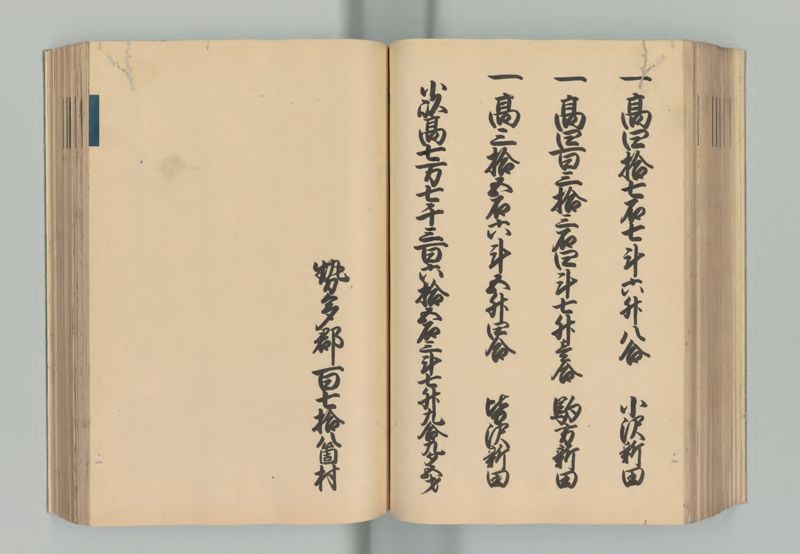 一高四拾七石七斗六升八合 小沢新田
一高四百三拾三石四斗七升三合 駒方新田
一高三拾五石六斗五升四合 沢新田
小以高七万七千三百六拾五石三斗七升九合九夕五才
勢多郡百七拾八箇村